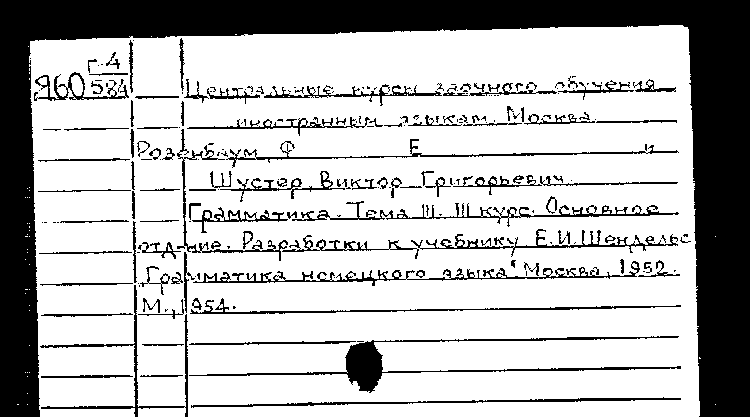 Г-4
Я60 584
Центральные курсы заочного обучения
иностранным языкам. Москва.
Розенбаум, Ф Е и
Шустер, Виктор Григорьевич.
Грамматика. Тема III. III курс. Основное
отд-ние. Разработки к учебнику Е.И.Шендельс
"Грамматика немецкого языка" Москва, 1952.
М., 1954.